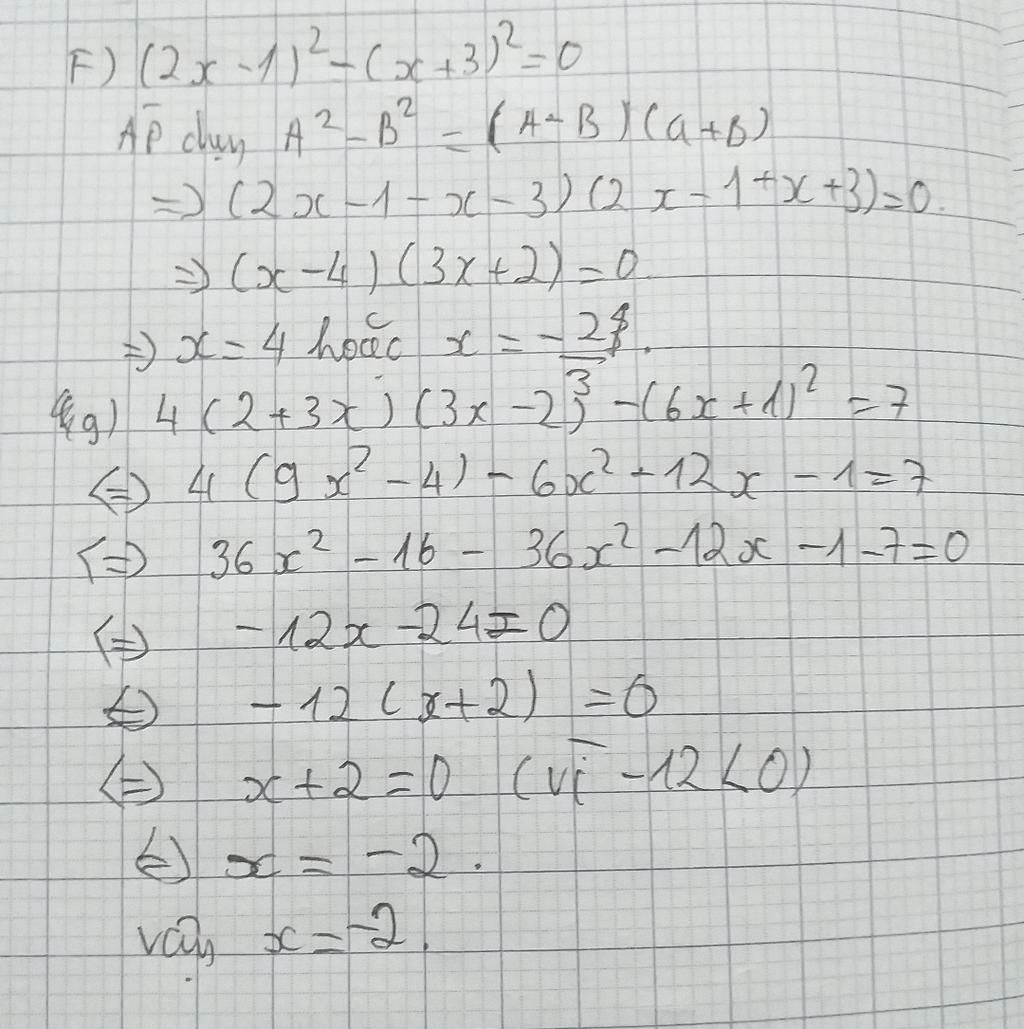 F) (2x - 1)² - (x + 3)² = 0
Áp dụng A² - B² = (A - B)(a + B)
=> (2x - 1 - x - 3)(2x - 1 + x + 3) = 0.
=> (x - 4)(3x + 2) = 0
=> x = 4 hoặc x = -2/3.
g) 4(2 + 3x)(3x - 2) - (6x + 1)² = 7
<=> 4(9x² - 4) - 6x² - 12x - 1 = 7
<=> 36x² - 16 - 36x² - 12x - 1 - 7 = 0
<=> -12x - 24 = 0
<=> -12(x + 2) = 0
<=> x + 2 = 0 (vì -12 < 0)
<=> x = -2.
vậy x = -2.